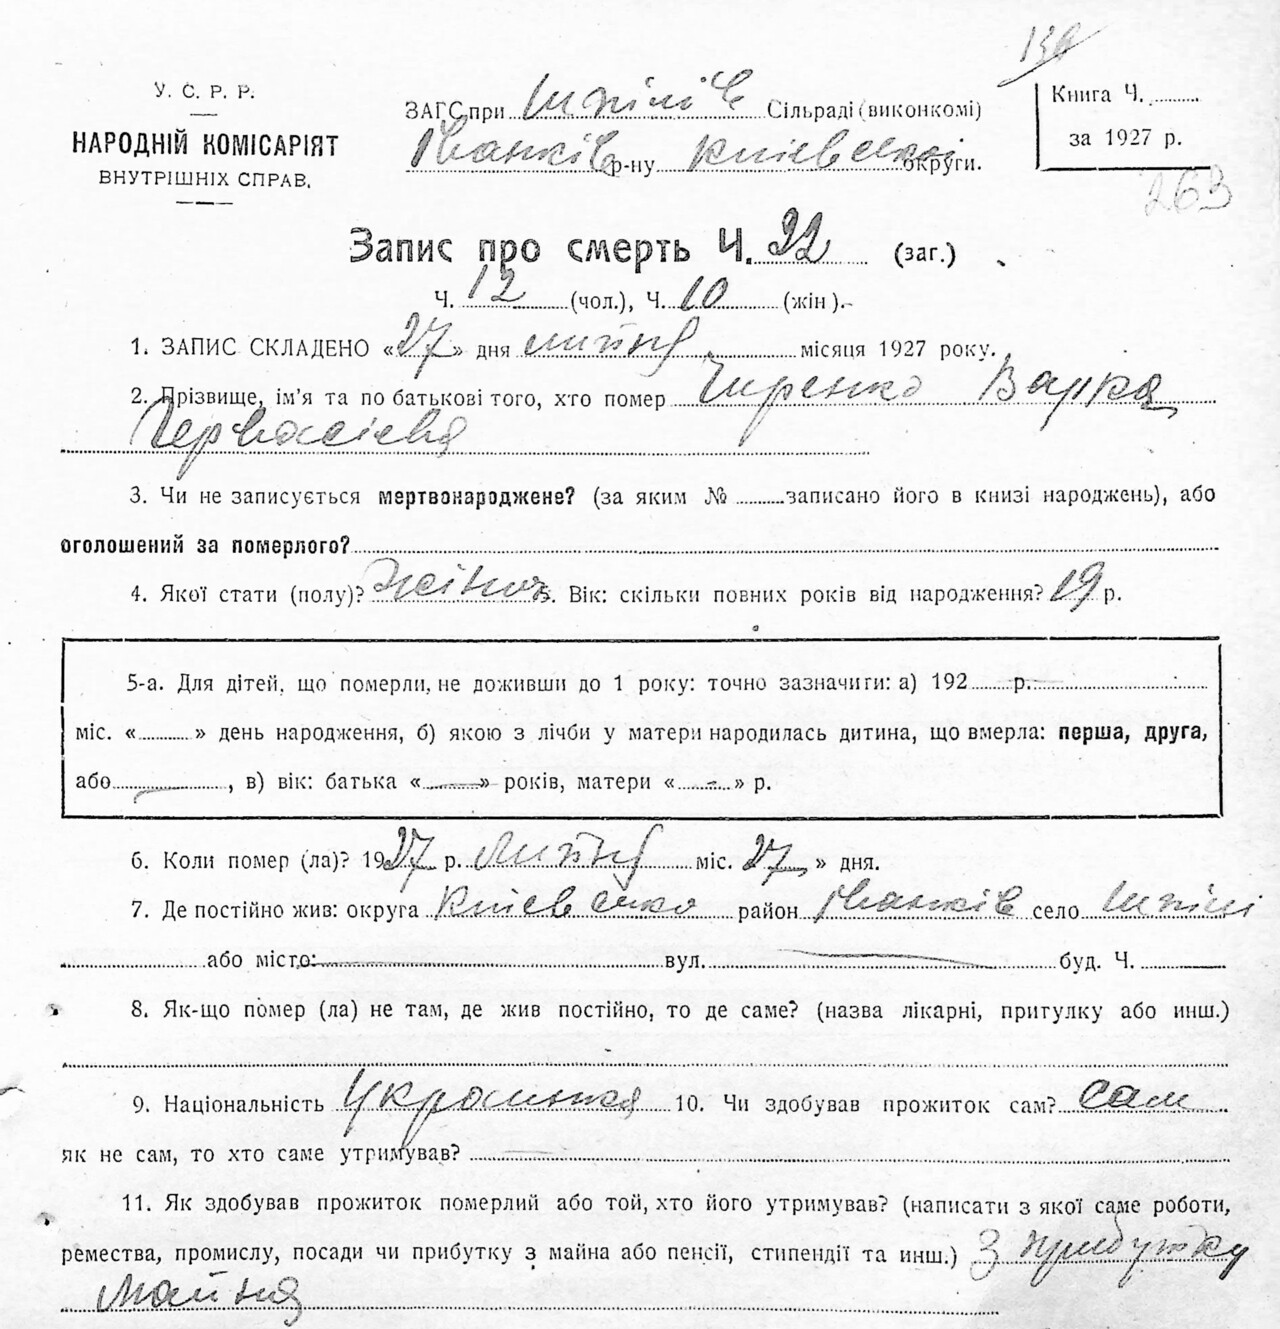 139
У. С. Р. Р.
НАРОДНІЙ КОМІСАРІЯТ
ВНУТРІШНІХ СПРАВ.
ЗАГС при Шпилів Сільраді (виконкомі)
Іванків р-ну Київської округи.
Книга Ч.
за 1927 р.
263
Запис про смерть Ч. 22 (заг.)
Ч. 12 (чол.), Ч. 10 (жін).
1. ЗАПИС СКЛАДЕНО «27» дня липня місяця 1927 року.
2. Прізвище, ім'я та по батькові того, хто помер Чиренко Варка
Червасієва
3. Чи не записується мертвонароджене? (за яким № записано його в книзі народжень), або
оголошений за померлого?
4. Якої стати (полу)? Жіноч. Вік: скільки повних років від народження? 19 р.
5-а. Для дітей, що померли, не доживши до 1 року: точно зазначити: а) 192 р.
міс. « » день народження, б) якою з лічби у матери народилась дитина, що вмерла: перша, друга,
або , в) вік: батька « — » років, матери « - » р.
6. Коли помер (ла)? 1927 р. липня міс. 27 » дня.
7. Де постійно жив: округа Київсько район Іванків село Шпилі
або місто: вул. буд. Ч.
8. Як-що помер (ла) не там, де жив постійно, то де саме? (назва лікарні, притулку або инш.)
9. Національність Украинка 10. Чи здобував прожиток сам? сам
як не сам, то хто саме утримував?
11. Як здобував прожиток померлий або той, хто його утримував? (написати з якої саме роботи,
ремества, промислу, посади чи прибутку з майна або пенсії, стипендії та инш.) З прибутку
майна